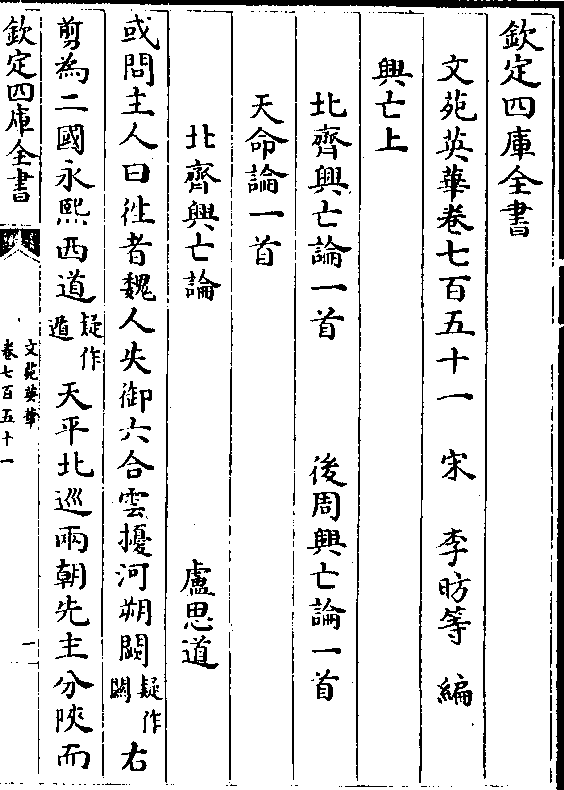 欽定四庫全書
文苑英華卷七百五十一 宋 李昉等 編
興亡上
北齊興亡論一首 後周興亡論一首
天命論一首
北齊興亡論 盧思道
或問主人曰徃者魏人失御六合雲擾河朔闕疑作關右
剪為二國永熙西道疑作遁天平北巡兩朝先主分陜而
欽定四庫全書
文苑英華
卷七百五十一
一